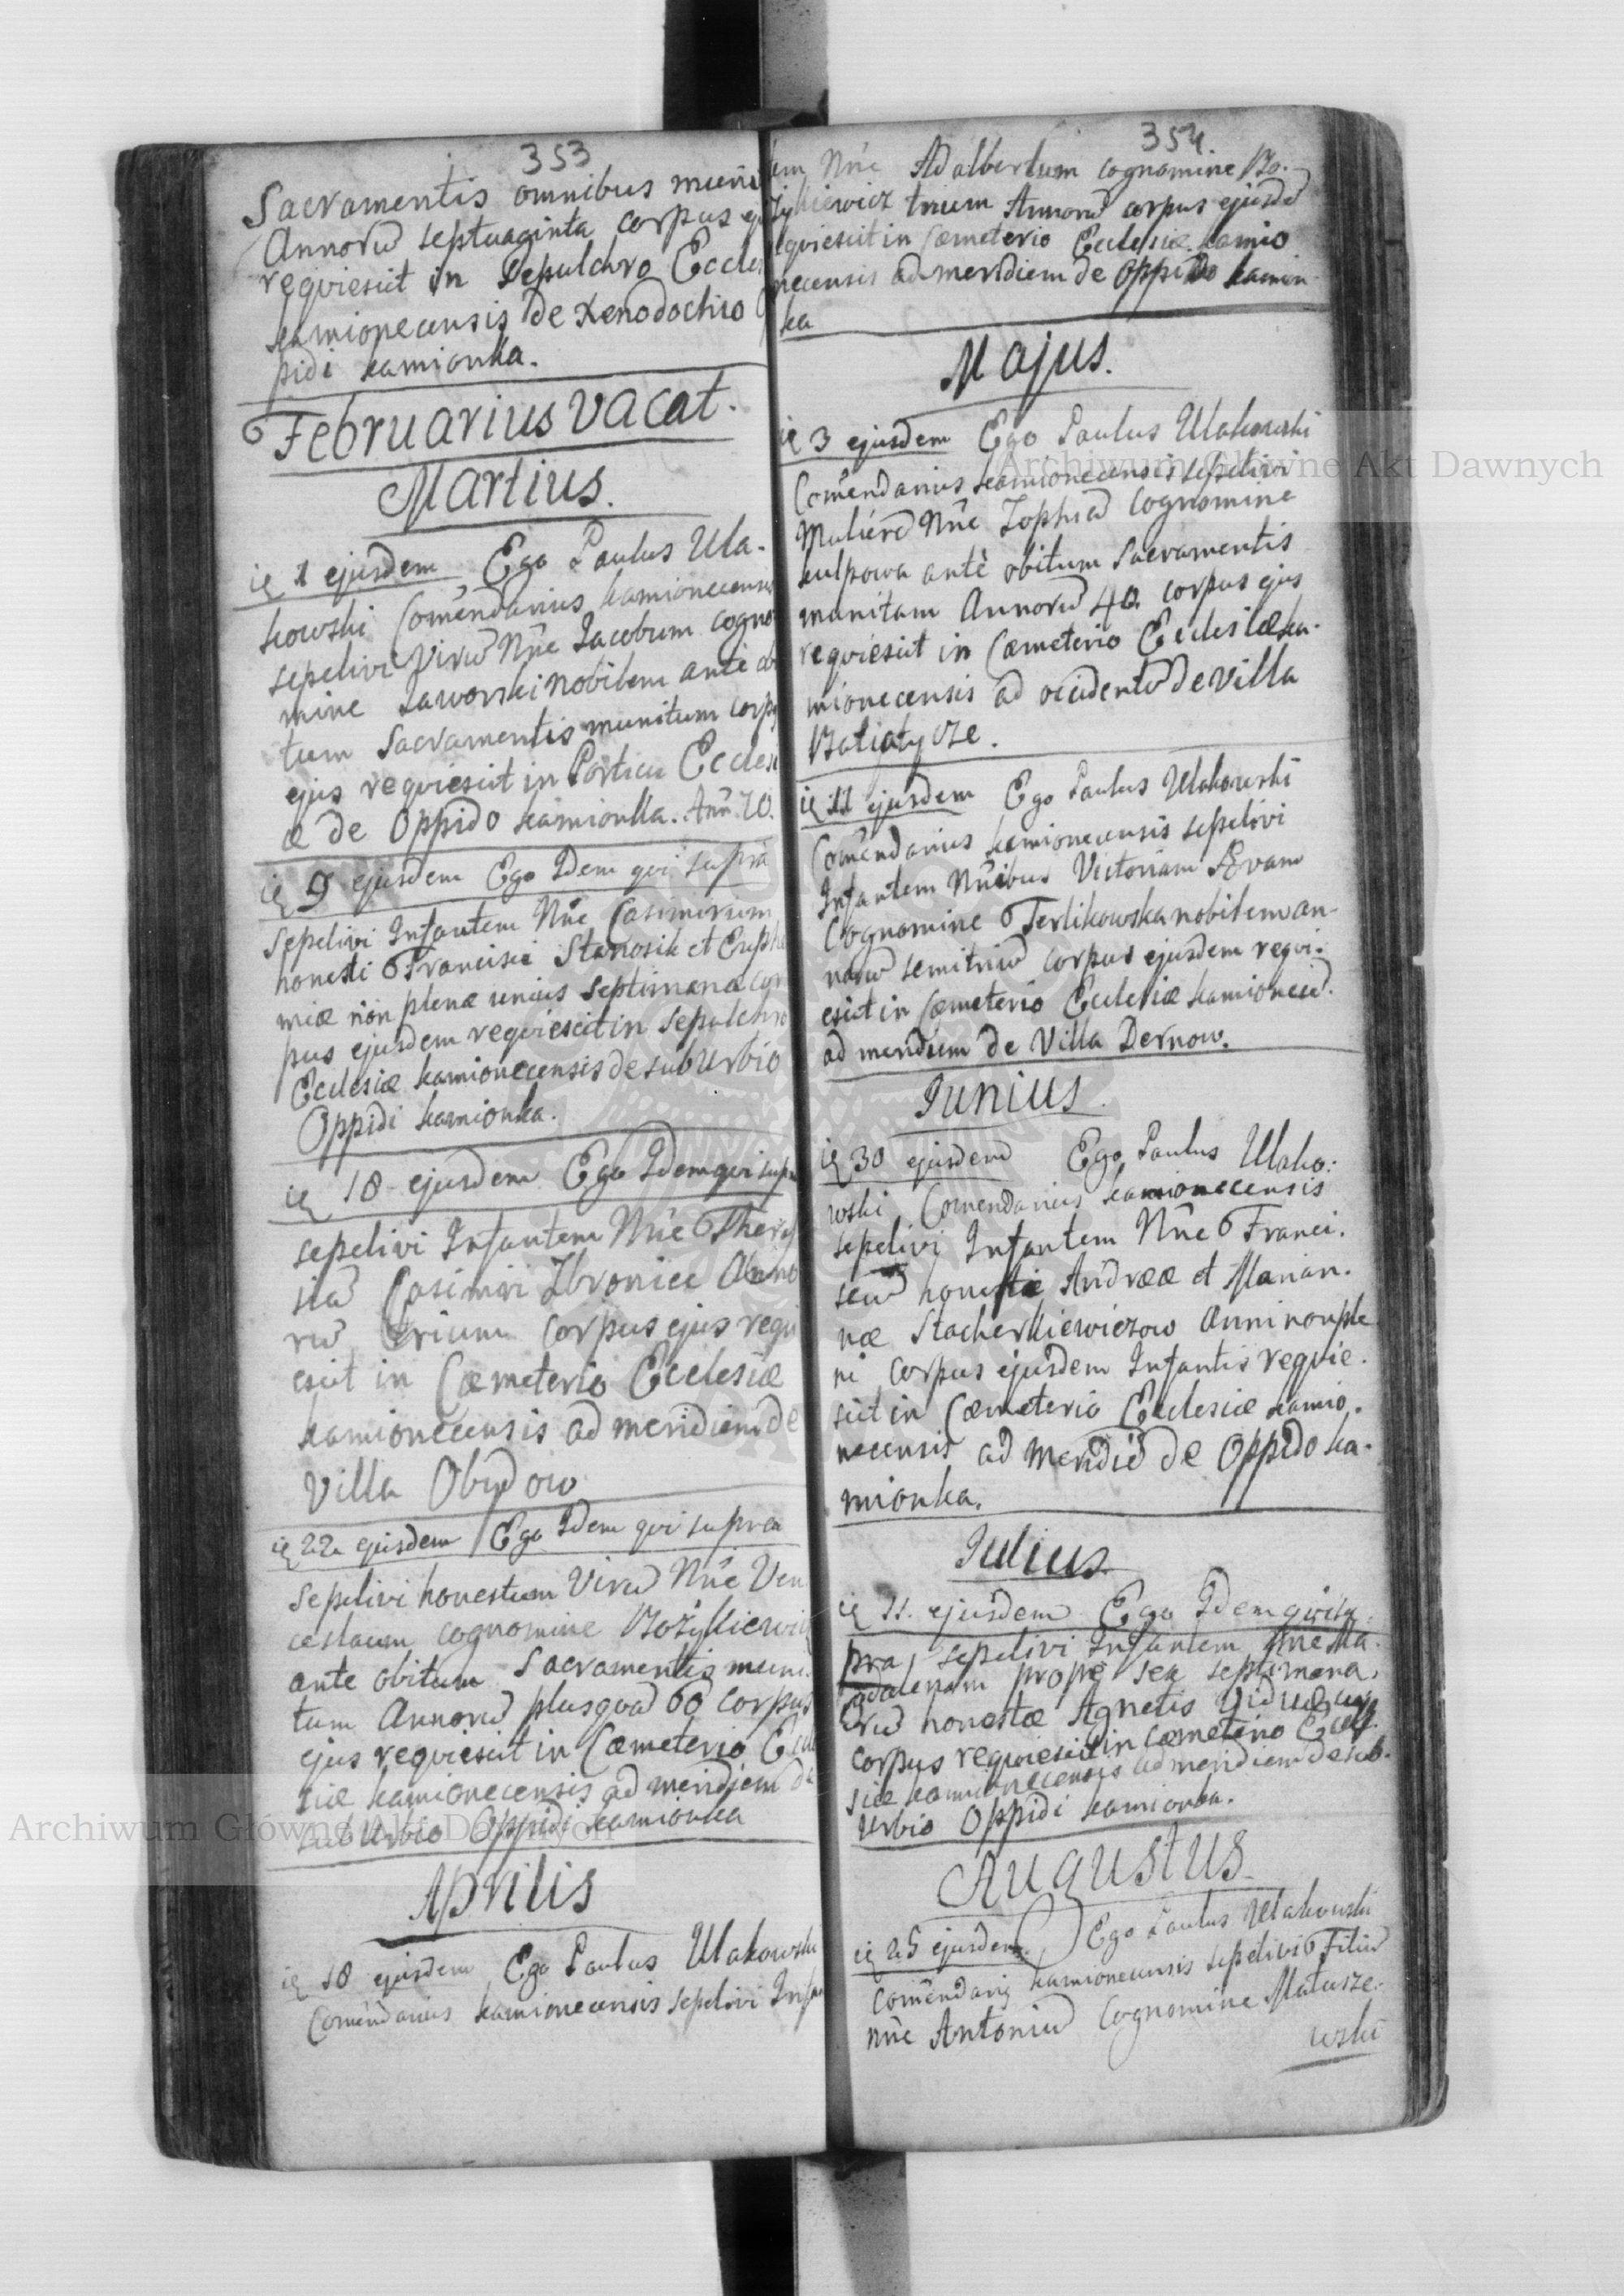 353
Sacramentis omnibus muni
Annorū septuaginta corpus ej
reqviescit in Sepulchro Eccles
Kamionecensis de Xenodochio O
pidi Kamionka.
Februarius vacat.
Martius.
ie 1 ejusdem Ego Paulus Ula-
kowski Com̃endarius Kamionecensis
sepelivi Virū Nñe Jacobum cogno
mine Jaworski nobilem ante obi
tum Sacramentis munitum corpus
ejus reqviescit in Porticu Ecclesi
æ de Oppido Kamionka. Ann̄ 70.
ie 9 ejusdem Ego Idem qvi supra
sepelivi Infantem Nñe Casimirum
honesti Francisci Stanosik et Euphe
miæ non plenæ unius septimanæ cor
pus ejusdem reqviescit in sepulchro
Ecclesiæ Kamionecensis de subUrbio
Oppidi Kamionka.
ie 18 ejusdem Ego Idem qvi supra
sepelivi Infantem Nñe There
siā Casimiri Zbroniec Anno
rū trium corpus ejus reqvi
escit in Cæmeterio Ecclesiæ
Kamionecensis ad meridiem de
Villa Obydow
ie 22 ejusdem Ego Idem qvi supra
sepelivi honestum Virū Nñe Ven
ceslaum cognomine Bożykiewicz
ante obitum Sacramentis muni
tum Annorū plusqvā 60 corpus
ejus reqviescit in Cæmeterio Eccle
siæ Kamionecensis ad meridiem de
subUrbio Oppidi Kamionka
Aprilis
ie 18 ejusdem Ego Paulus Ulakowski
Com̃endarius Kamionecensis sepelivi Infan
354
tem Nñe Adalbertum cognomine Bo-
żykiewicz trium Annorū corpus ejusdē
reqviescit in Cæmeterio Ecclesiæ Kamio
necensis ad meridiem de Oppido Kamion-
ka
Majus.
ie 3 ejusdem Ego Paulus Ulakowski
Com̃endarius Kamionecensis sepelivi
Mulierē Nñe Zophiā cognomine
Kulpowa ante obitum Sacramentis
munitam Annorū 40 corpus ejus
reqviescit in Cæmeterio Ecclesiæ Ka-
mionecensis ad occidentē de Villa
Batiatycze.
ie 11 ejusdem Ego Paulus Ulakowski
Com̃endarius Kamionecensis sepelivi
Infantem Nñibus Victoriam Evam
Cognomine Terlikowska nobilem an-
norū semitriū corpus ejusdem reqvi-
escit in Cæmeterio Ecclesiæ Kamionecen.
ad meridiem de Villa Dernow.
Iunius.
ie 30 ejusdem Ego Paulus Ulako:
wski Comendarius Kamionecensis
sepelivi Infantem Nñe Franci.
scū honesti Andreæ et Marian.
næ Stacherkiewiczow Anni non ple
ni corpus ejusdem Infantis reqvie.
scit in Cæmeterio Ecclesiæ Kamio.
necensis ad meridiē de Oppido Ka-
mionka.
Iulius.
ie 11. ejusdem Ego Idem qvi su.
pra sepelivi Infantem Nñe Ma.
gdalenam prope sex septimana.
rū honestæ Agnetis Viduæ
corpus reqviescit in Cæmeterio Eccle
siæ Kamionecensis ad meridiem de sub.
Urbio Oppidi Kamionka.
Augustus
ie 25 ejusdem Ego Paulus Ulakowski
Com̃endarius Kamionecensis sepelivi Filiū
Nñe Antoniū Cognomine Matusze.
wski
Archiwum Główne Akt Dawnych
Archiwum Główne Akt Dawnych